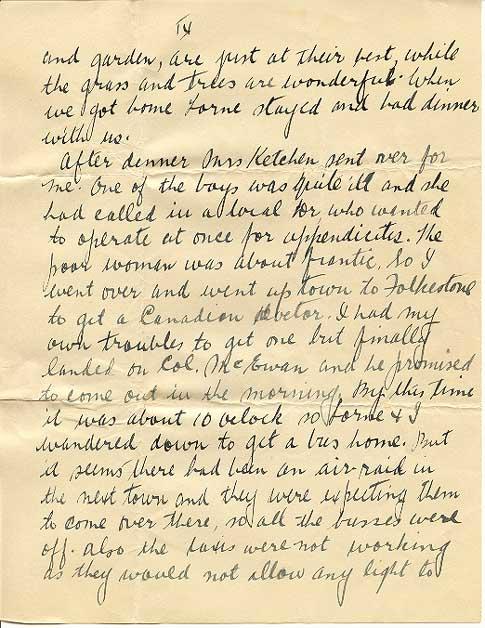 IV
and garden, are just at their best, while
the grass and trees are wonderful. When
we got home Lorne stayed and had dinner
with us.
After dinner Mrs Ketchen sent over for
me. One of the boys was quite ill and she
had called in a local Dr, who wanted
to operate at once for appendicites. The
poor woman was about frantic, so I
went over and went up town to Folkestone
to get a Canadian doctor. I had my
own troubles to get one but finally
landed on Col. McEwan and he promised
to come out in the morning. By this time
it was about 10 oclock so Lorne & I
wandered down to get a bus home. But
it seems there had been an air-raid in
the next town and they were expecting them
to come over there, so all the busses were
off. Also the taxis were not working
as they would not allow any light to